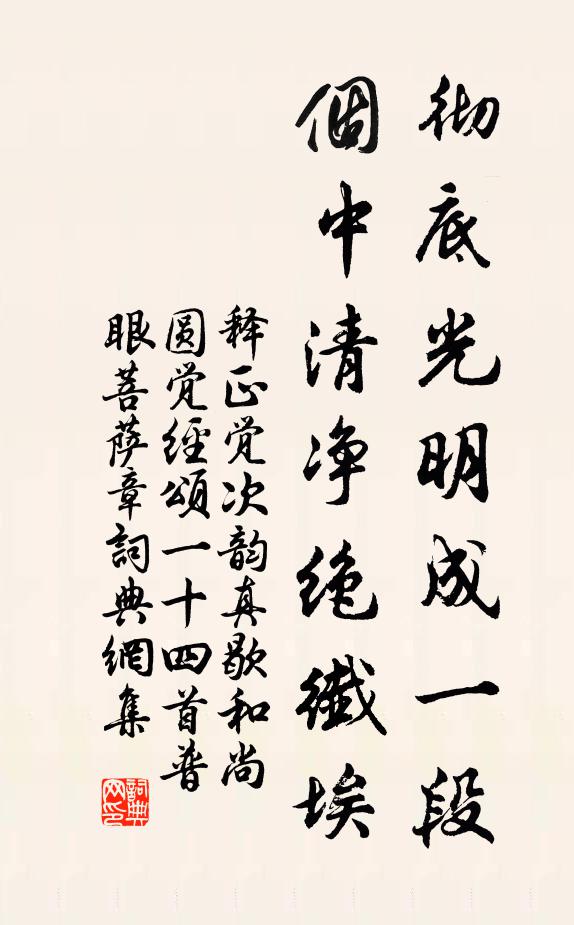 彻底光明成一段
個中清净绝纖埃
释正觉次韵真歇和尚
圆觉經頌一十四首普
眼菩萨章詞典網集
詞典
网印